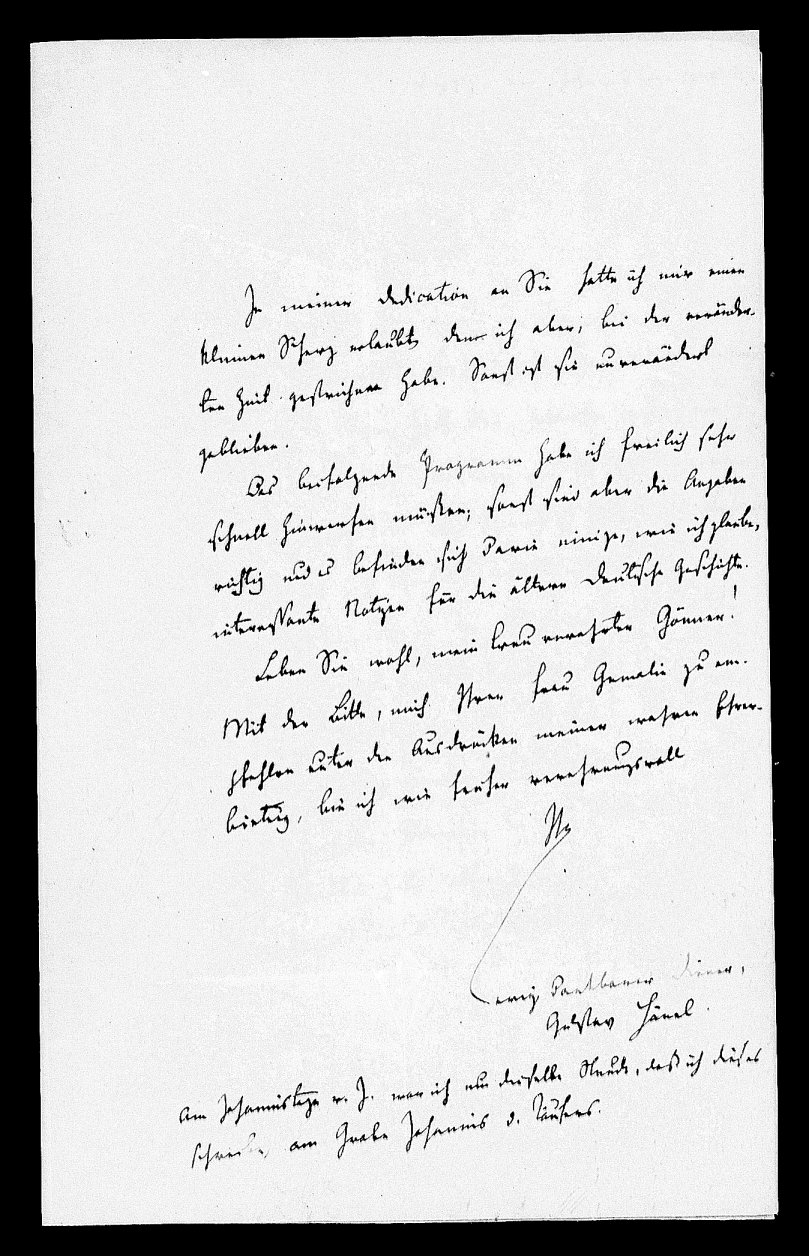 In meiner dedication an Sie hatte ich mir einen
kleinen Scherz erlaubt, den ich aber, bei der veränder-
ten Zeit gestrichen habe. Sonst ist sie unverändert
geblieben.
Das beifolgende Programm habe ich freilich sehr
schnell hinwerfen müssen; sonst sind aber die Angaben
richtig und es befinden sich darin einige, wie ich glaube,
interessante Notizen für die ältere deutsche Geschichte.
Leben Sie wohl, mein treu verehrter Gönner!
Mit der Bitte, mich Ihrer Frau Gemalin zu em-
pfehlen unter den Ausdrücken meiner wahren Ehrer-
bietung, bin ich wie früher verehrungsvoll
Ihr
ewig dankbarer Diener,
Gustav Hänel.
Am Johannistage v. J. war ich um dieselbe Stunde, daß ich dieses
schreibe, am Grabe Johannis d. Täufers.